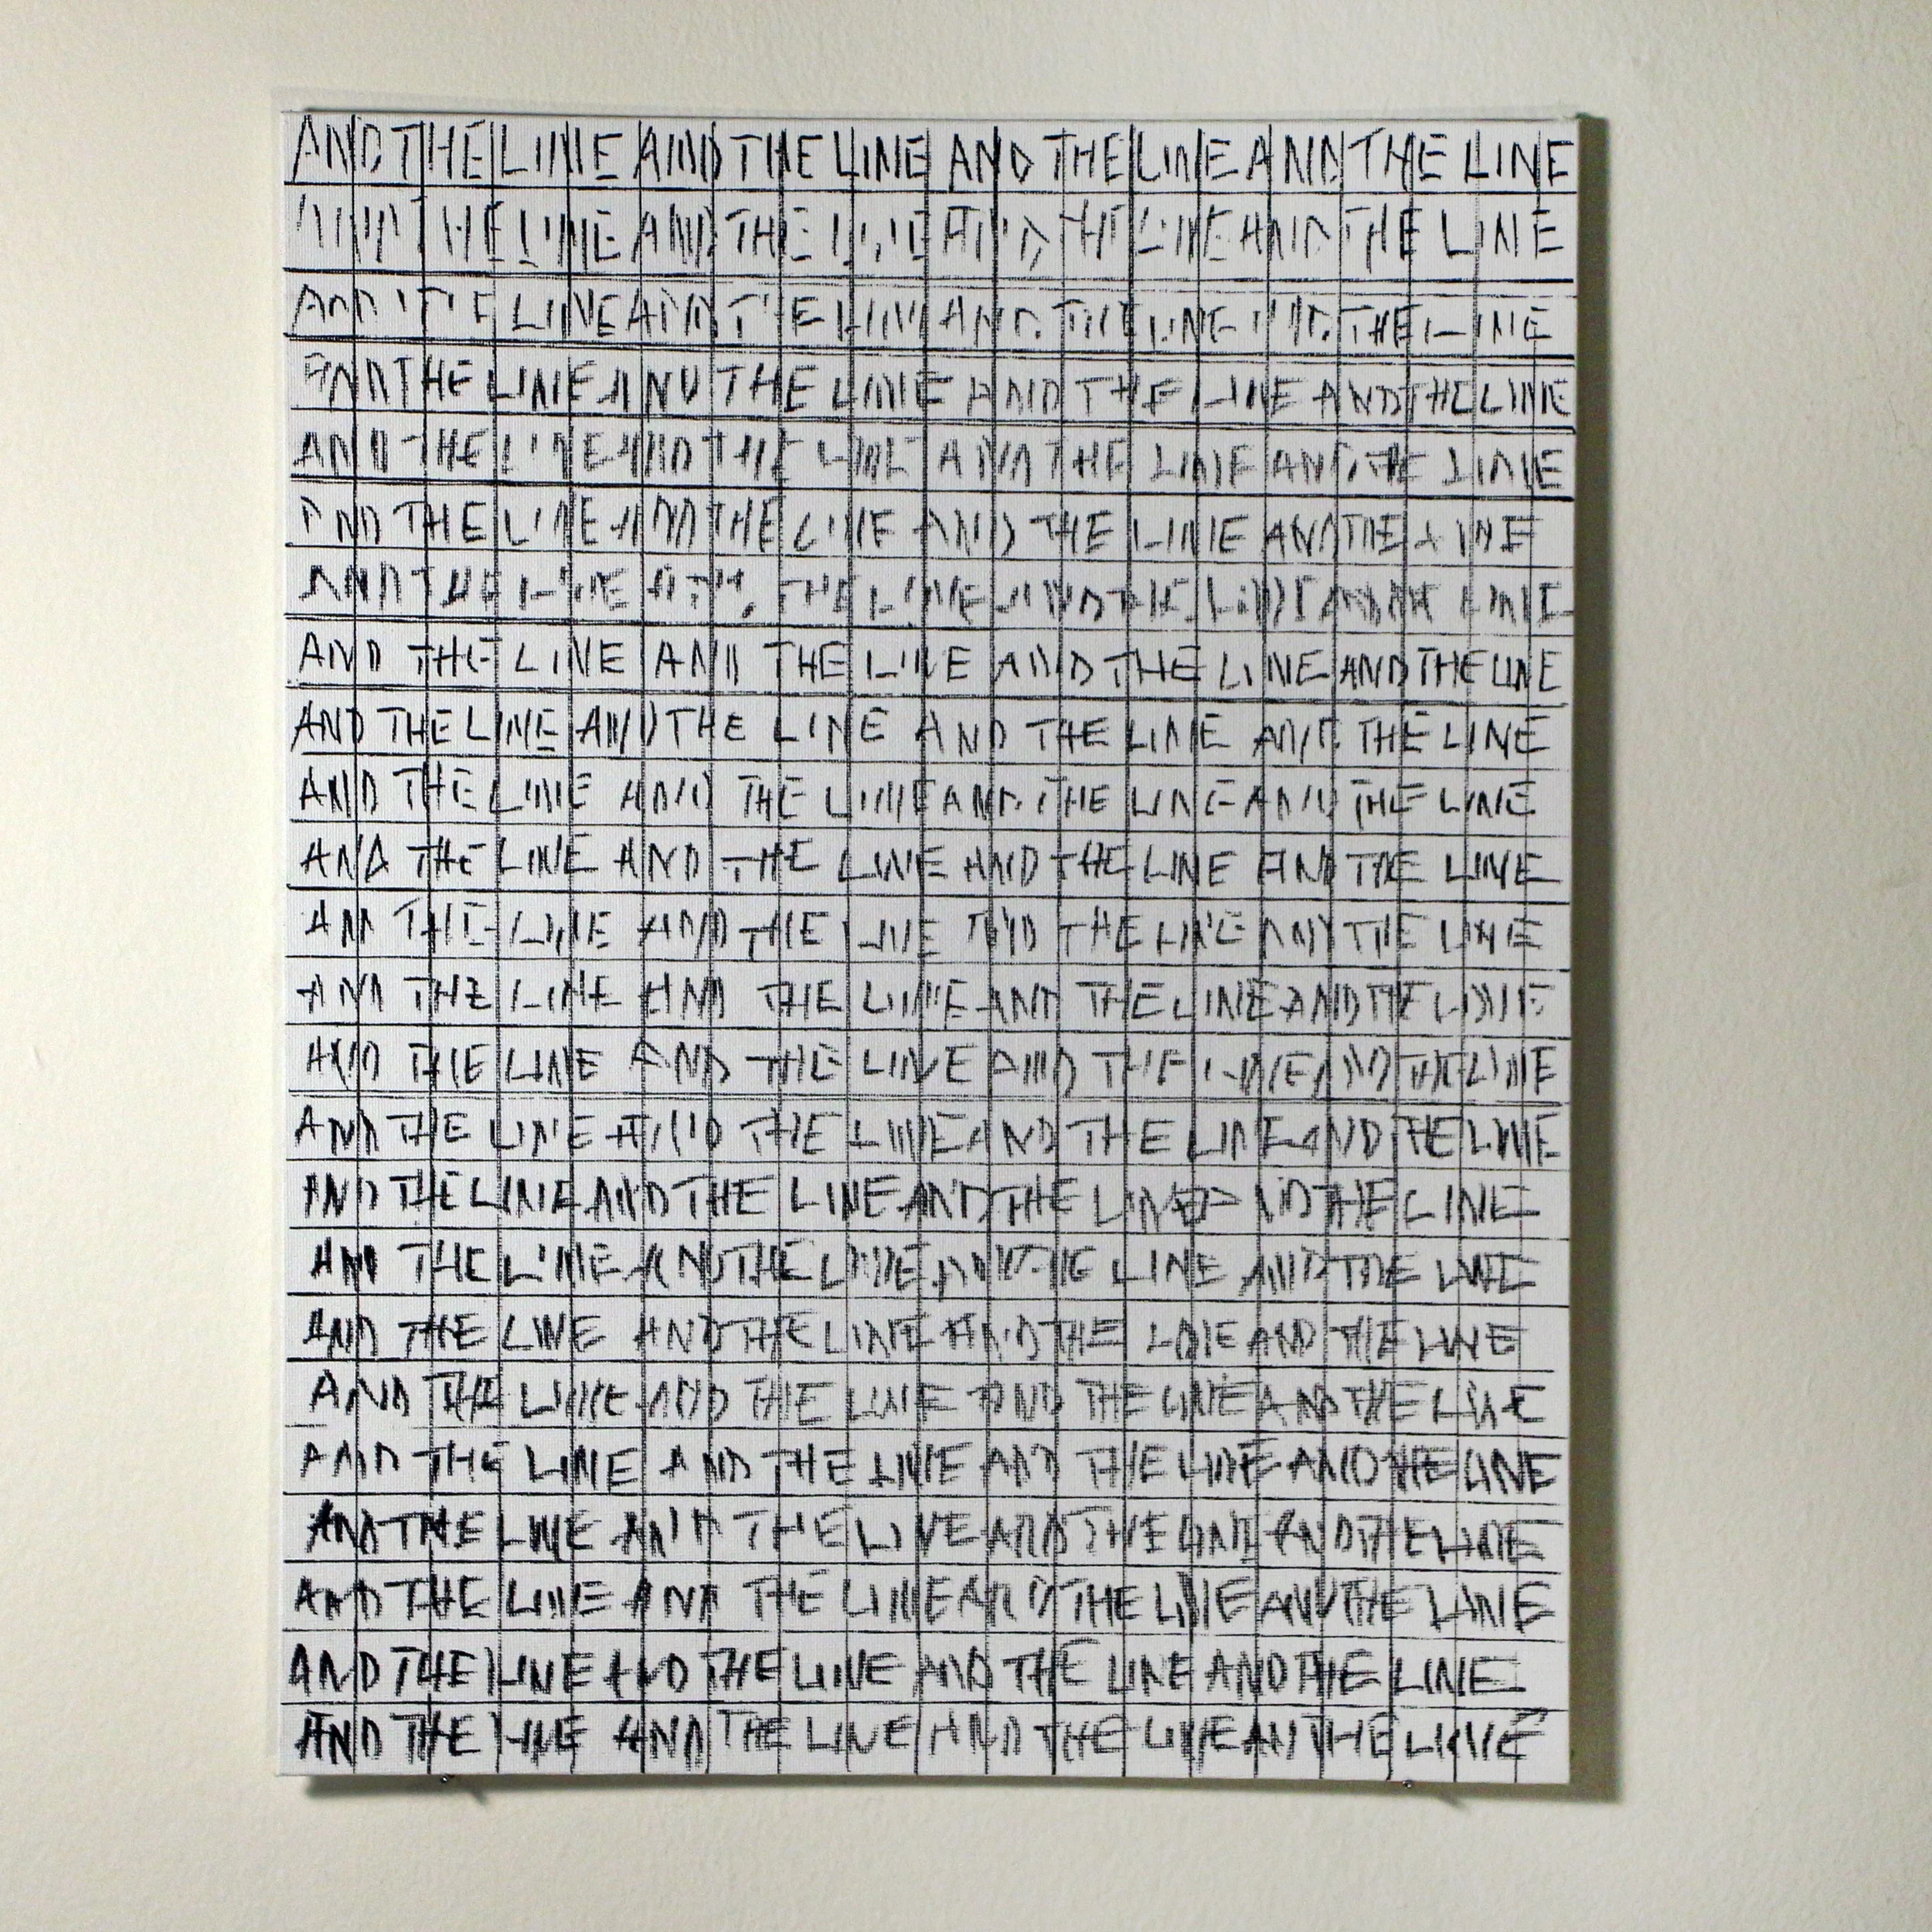 AND THE LINE AND THE LINE AND THE LINE AND THE LINE
AND THE LINE AND THE LINE AND THE LINE AND THE LINE
AND THE LINE AND THE LINE AND THE LINE AND THE LINE
AND THE LINE AND THE LINE AND THE LINE AND THE LINE
AND THE LINE AND THE LINE AND THE LINE AND THE LINE
AND THE LINE AND THE LINE AND THE LINE AND THE LINE
AND THE LINE AND THE LINE AND THE LINE AND THE LINE
AND THE LINE AND THE LINE AND THE LINE AND THE LINE
AND THE LINE AND THE LINE AND THE LINE AND THE LINE
AND THE LINE AND THE LINE AND THE LINE AND THE LINE
AND THE LINE AND THE LINE AND THE LINE AND THE LINE
AND THE LINE AND THE LINE AND THE LINE AND THE LINE
AND THE LINE AND THE LINE AND THE LINE AND THE LINE
AND THE LINE AND THE LINE AND THE LINE AND THE LINE
AND THE LINE AND THE LINE AND THE LINE AND THE LINE
AND THE LINE AND THE LINE AND THE LINE AND THE LINE
AND THE LINE AND THE LINE AND THE LINE AND THE LINE
AND THE LINE AND THE LINE AND THE LINE AND THE LINE
AND THE LINE AND THE LINE AND THE LINE AND THE LINE
AND THE LINE AND THE LINE AND THE LINE AND THE LINE
AND THE LINE AND THE LINE AND THE LINE AND THE LINE
AND THE LINE AND THE LINE AND THE LINE AND THE LINE
AND THE LINE AND THE LINE AND THE LINE AND THE LINE
AND THE LINE AND THE LINE AND THE LINE AND THE LINE